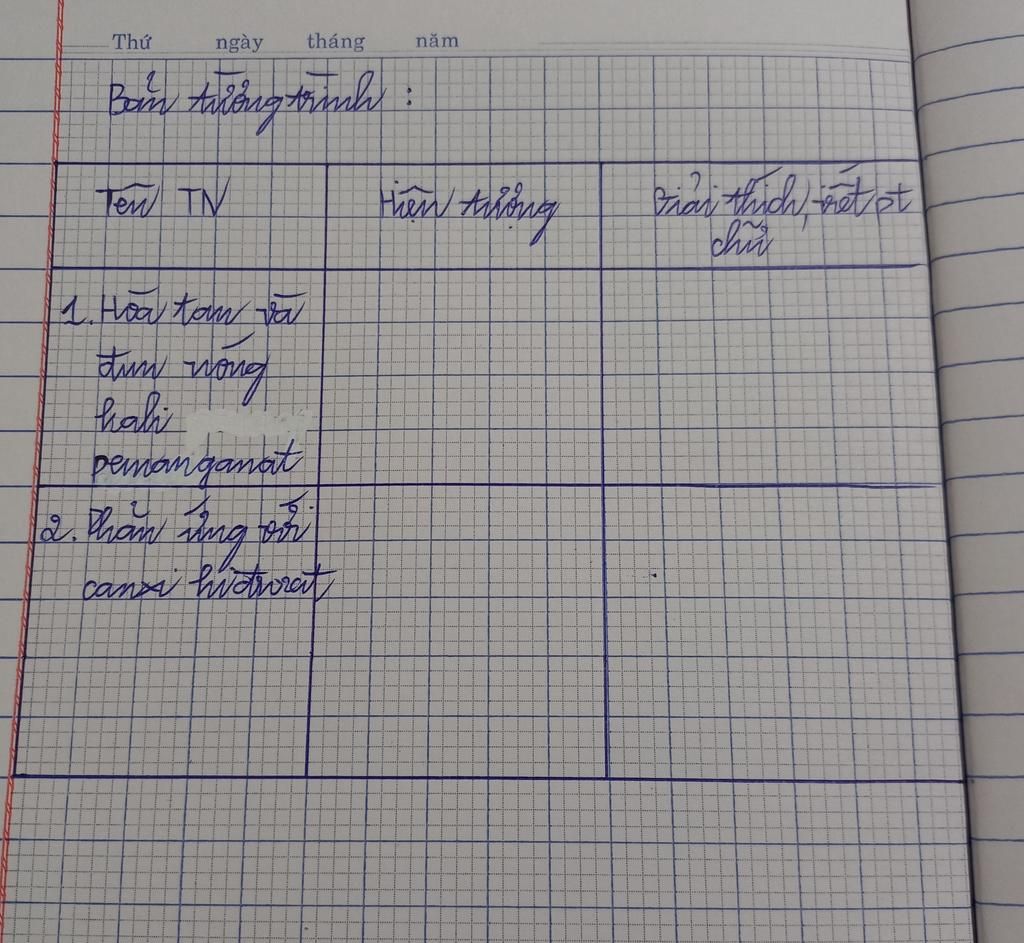 Thứ ngày tháng năm
Bản tường trình :
Tên TN
Hiện tượng
Giải thích, viết pt
chữ
1. Hòa tan và
đun nóng
kali
pemanganat
2. Phản ứng với
canxi hiđroxit